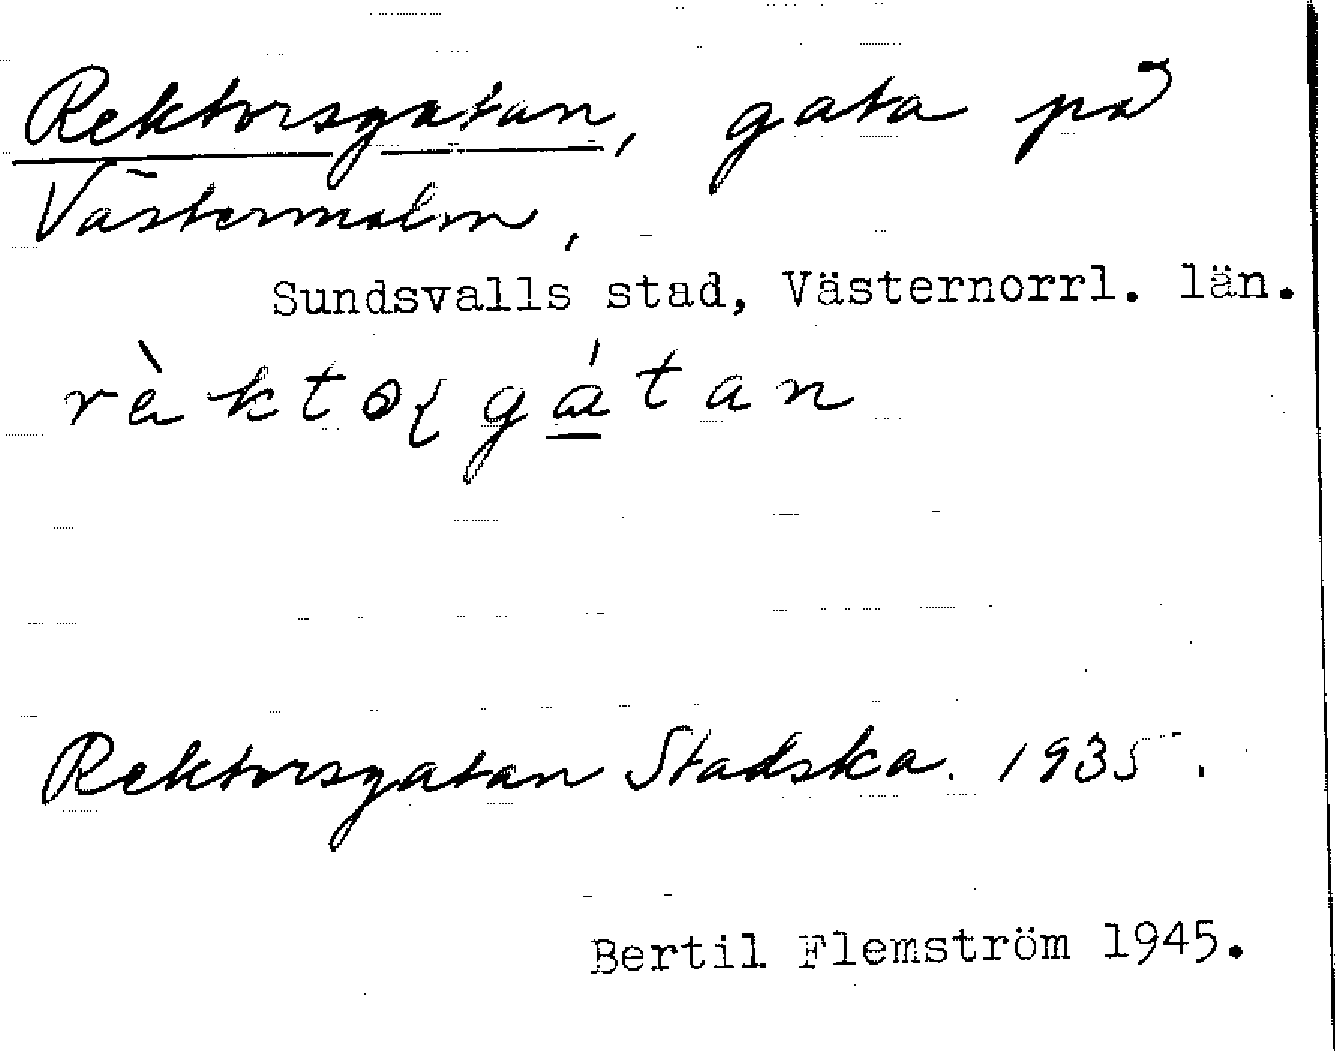 Rektorsgatan, gata på
Västermalm,
Sundsvalls stad, Västernorrl. län.
Rektorsgatan Stadska. 1935.
Bertil Flemström 1945.